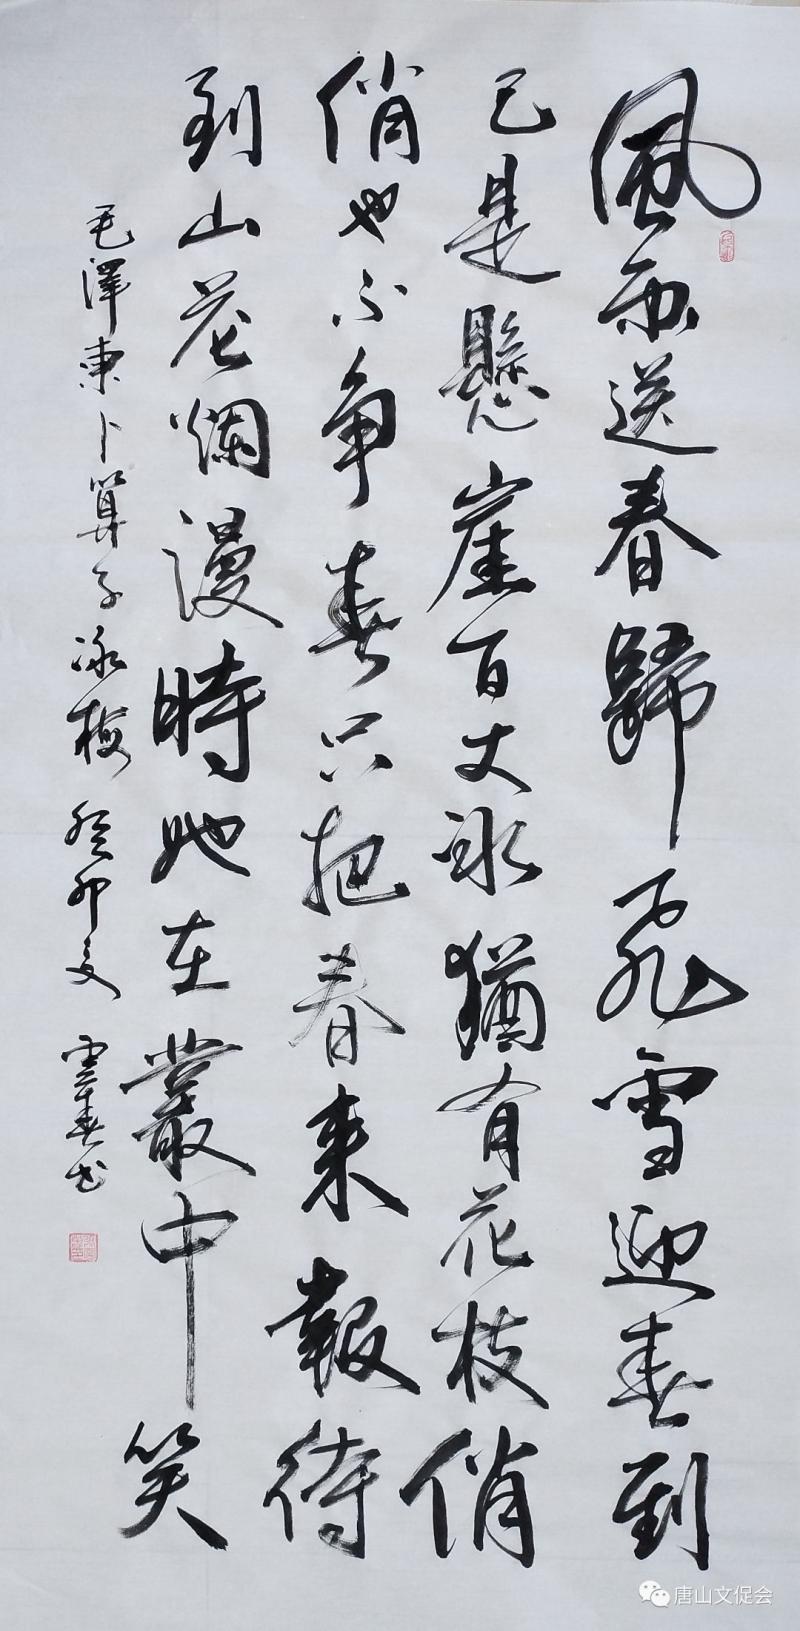 風雨送春歸飛雪迎春到
已是懸崖百丈冰猶有花枝俏
俏也不争春只把春来報待
到山花爛漫時她在叢中笑
毛澤東卜算子咏梅 癸卯夏 雲春书
唐山文促会